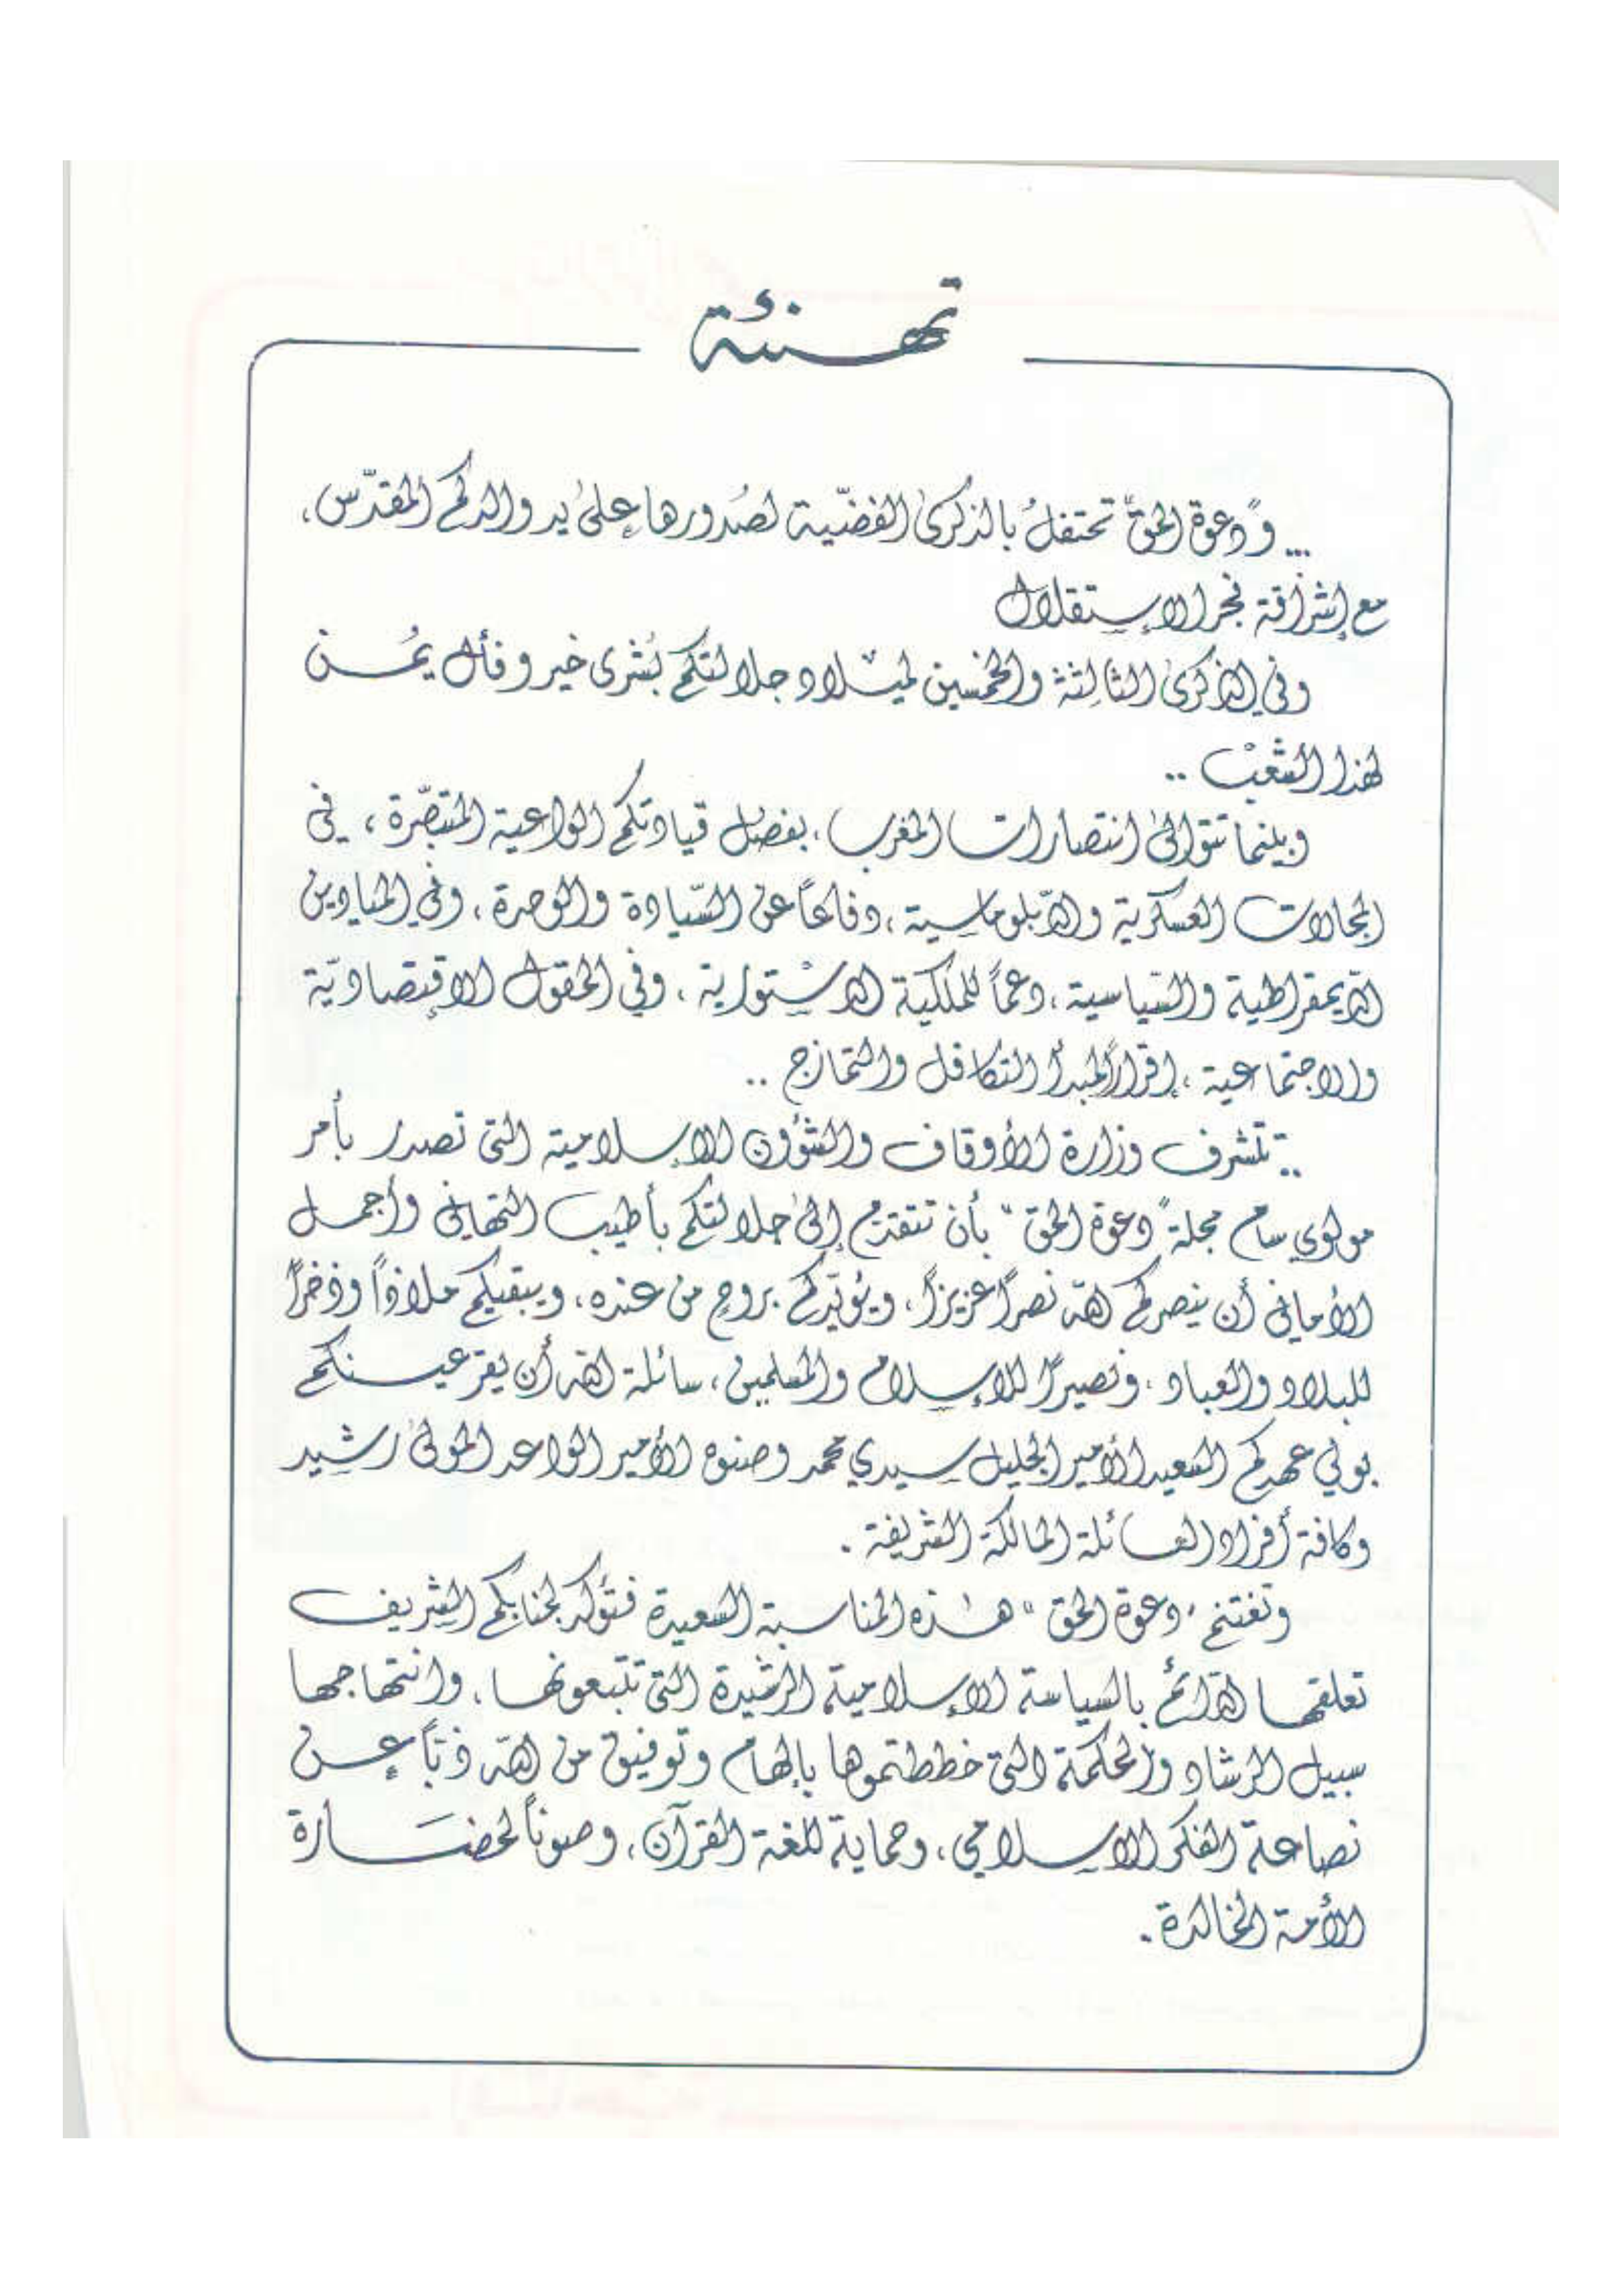 تهنئة
... و"دعوة الحق" تحتفل بالذكرى الفضّية لصُدورها على يد والدكم المقدّس،
مع إشراقة فجر الإستقلال
وفي الذكرى الثالثة والخمسين لميلاد جلالتكم بُشرى خير وفأل يُمن
لهذا الشعب ..
وبينما تتوالى انتصارات المغرب، بفضل قيادتكم الواعية المتبصّرة، في
المجالات العسكرية والدّبلوماسية، دفاعاً عن السّيادة والوحدة، وفي الميادين
الدّيمقراطية والسّياسية، دعماً للملكية الدستورية، وفي الحقول الإقتصاديّة
والاجتماعية، إقراراً لمبدأ التكافل والتمازج ..
.. تتشرف وزارة الأوقاف والشؤون الإسلامية التي تصدر بأمر
مولوي سام مجلة "دعوة الحق" بأن تتقدم إلى جلالتكم بأطيب التهاني وأجمل
الأماني أن ينصركم الله نصراً عزيزاً، ويؤيّدكم بروح من عنده، ويبقيكم ملاذاً وذخراً
للبلاد والعباد، ونصيراً للإسلام والمسلمين، سائلة الله أن يقر عينكم
بولي عهدكم السعيد الأمير الجليل سيدي محمد وصنوه الأمير الواعد المولى رشيد
وكافة أفراد العائلة المالكة الشريفة .
وتغتنم "دعوة الحق" هذه المناسبة السعيدة فتؤكد لجنابكم الشريف
تعلقها الدّائم بالسياسة الإسلامية الرشيدة التي تتبعونها، وانتهاجها
سبيل الرشاد والحكمة التي خططتموها بإلهام وتوفيق من الله ذبّاً عن
نصاعة الفكر الإسلامي، وحماية للغة القرآن، وصوناً لحضارة
الأمة الخالدة .